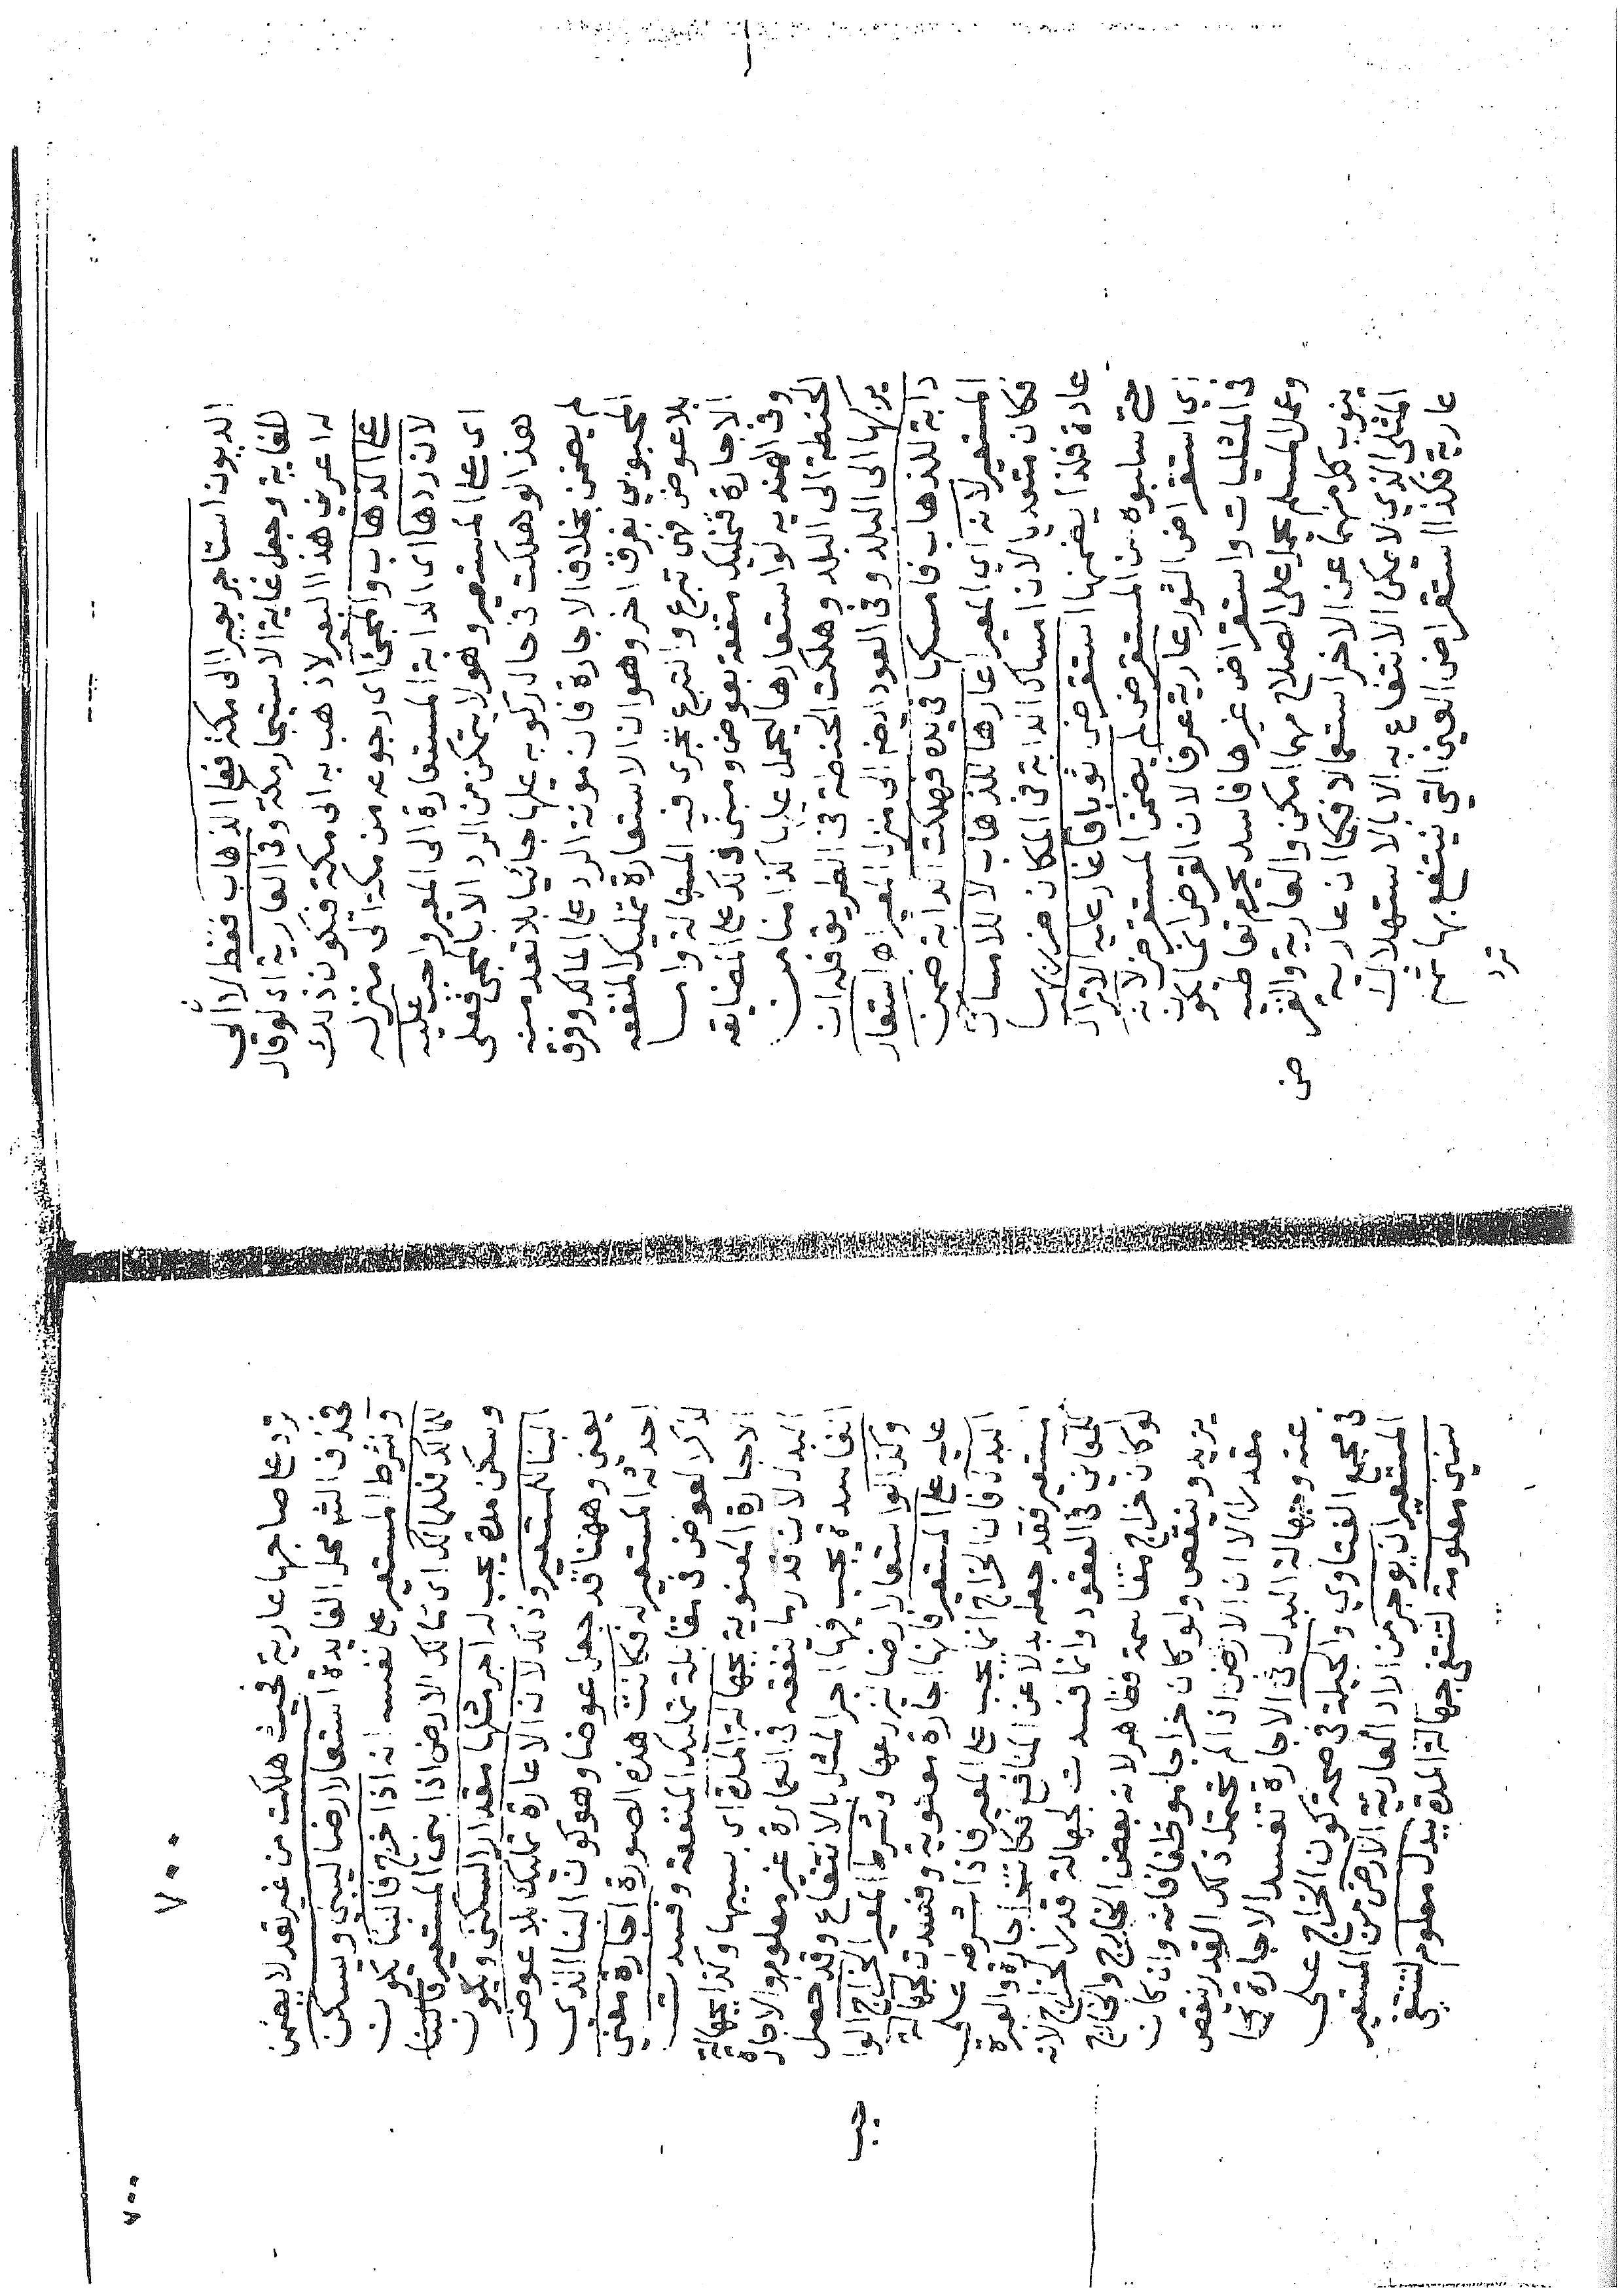 الديون استاجر بعيرا الى مكة فعلى الذهاب فقط لا الى
للغاية وجعل غاية الاستيجار مكة وفى العارية اى لو قال
له اعرني هذا البعير لاذهب به الى مكة فيكون ذلك
على الذهاب والمجئ اى رجوعه من مكة الى منزله
لان ردها اى الدابة المستعارة الى المعير واجب عليه
اى على المستعير وهو لا يتمكن من الرد الا بالمجئ فعلى
هذا لو هلكت فى حال ركوبه عليها جائيا بلا تعد منه
لم يضمن بخلاف الاجارة فان مونة الرد على المالك وفرق
المحبوبي بفرق اخر وهو ان الاستعارة تمليك المنفعه
بلا عوض فهى تبرع والتبرع يجرى فيه المساهلة واما
الاجارة فتمليك منفعة بعوض ومبنى ذلك على المضايقه
وفى الهنديه لو استعارها ليحمل عليها كذا منا من
الحنطة الى البلد وهلكت الحنطة فى الطريق فله ان
يركبها الى البلد وفى العود ايضا الى منزل المعير اه استعار
دابة للذهاب فامسكها فى يده فهلكت الدابة ضمن
المستعير لانه اي المعير اعارها للذهاب لا للامساك
فكان متعديا لان امساك الدابة فى المكان ضرر بها
عادة فلذا يضمنها استقرض ثورا فاغار عليه الاتراك
سلبوه من المستقرض لم يضمن المستقرض لانه
اي استقراض الثور عارية عرفا لان القرض انما يكون
فى المثليات واستقراض غيرها فاسد يحرم تعاطيه
وعمل المسلم يحمل على الصلاح مهما امكن والعارية والقرض
ينوب كل منهما عن الاخر استعمالا فكما ان عارية
المثلى الذي لا يمكن الانتفاع به الا بالاستهلاك
عارية فكذا استقراض العين التي ينتفع بها ثم
ترد
٧٠٠
٧٠٠
ترد على صاحبها عارية فحيث هلكت من غير تعد لا يضمن
فحذف الشم محل الفايدة استعار ارضا ليبنى ويسكن
وشرط المستعير على نفسه انه اذا خرج فالبنا يكون
للمالك فللمالك اى مالك الارض اذا بنى المستعير فالبنا
وسكن مدة يجب له اجر مثلها مقدار السكنى ويكون
البنا للمستعير وذلك لان الاعارة تمليك بلا عوض
يعنى وههنا قد جعل عوضا وهو كون البنا الذى
احدثه المستعير له فكانت هذه الصورة اجارة معنى
لذكر العوض فى مقابلة تمليك المنفعة وفسدت
الاجارة المعنوية بجهالة المدة اى بسببها وكذا بجهالة
البدل لان قدر ما ينفقه فى العمارة غير معلوم والاجارة
الفاسدة يجب فيها اجر المثل بالانتفاع وقد حصل
وكذا لو استعار ارضا يزرعها وشرط المعير الخراج الواجب
عليه على المستعير فانها اجارة معنوية وفسدت بجهالة
البدل فان الخراج انما يجب على المعير فاذا شرطه على
المستعير فقد جعله بدلا عن المنافع فكانت اجارة والعبرة
للمعاني فى العقود وانما فسدت لجهالة قدر الخراج لانه
لو كان خراج مقاسمة فظاهر لانه بعض الخارج والخارج
يزيد وينقص ولو كان خراجا موظفا فانه وان كان
مقدرا الا ان الارض اذا لم تحتمل ذلك القدر ينقص
عنه وجهالة البدل فى الاجارة تفسد الاجارة كما
فى مجمع الفتاوي والحيلة فى صحة كون الخراج على
المستعير ان يوجر من اراد العارية الارض من المستعير
سنين معلومة لتنتفى جهالة المدة ببدل معلوم لتنتفى